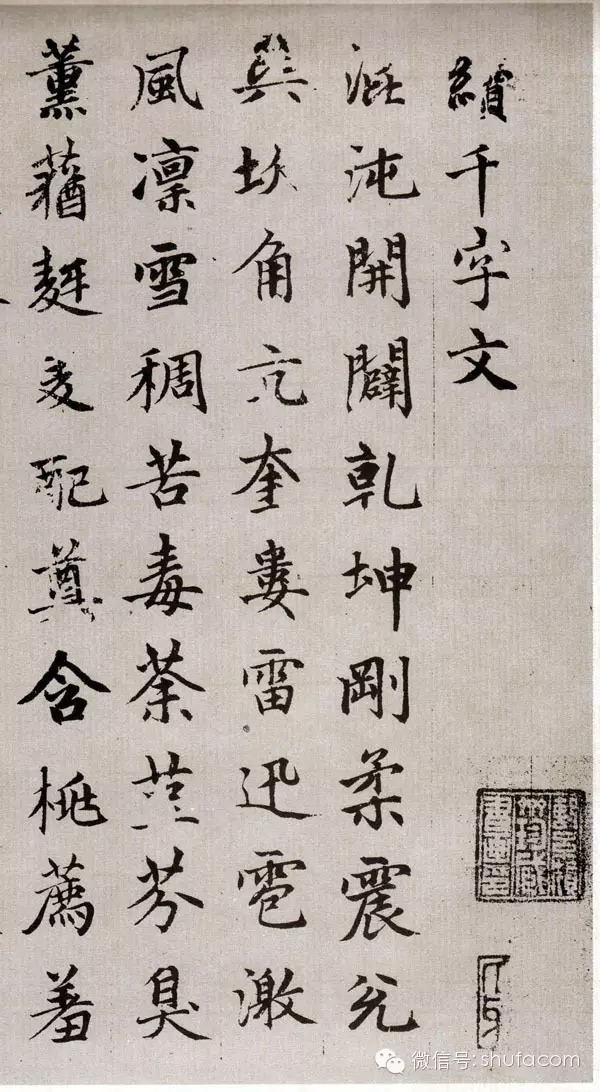 續千字文
混沌開闢乾坤剛柔震兌
巽坎角亢奎婁雷迅雹激
風凛雪稠苦毒荼芬臭
薰蕕麥配尊含桃薦羞
微信号:shufacom